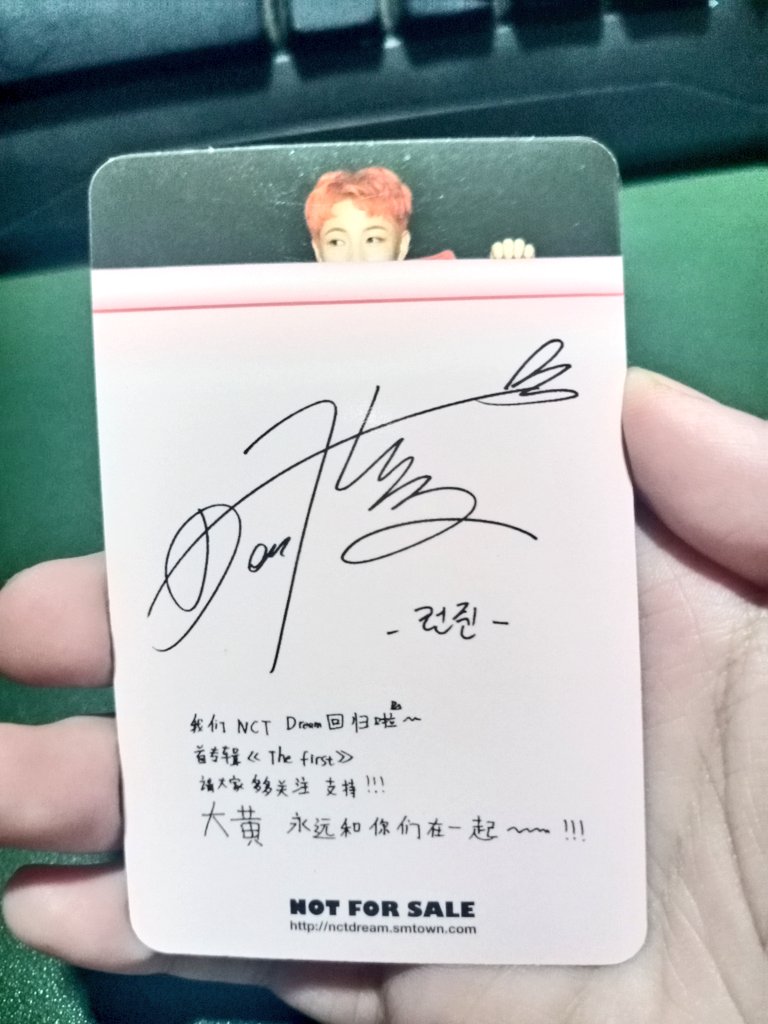 - 런쥔 -
我们 NCT Dream 回归啦~
首专辑《The first》
請大家多多关注 支持!!!
大黄 永远和你们在一起~~~ !!!
NOT FOR SALE
http://nctdream.smtown.com